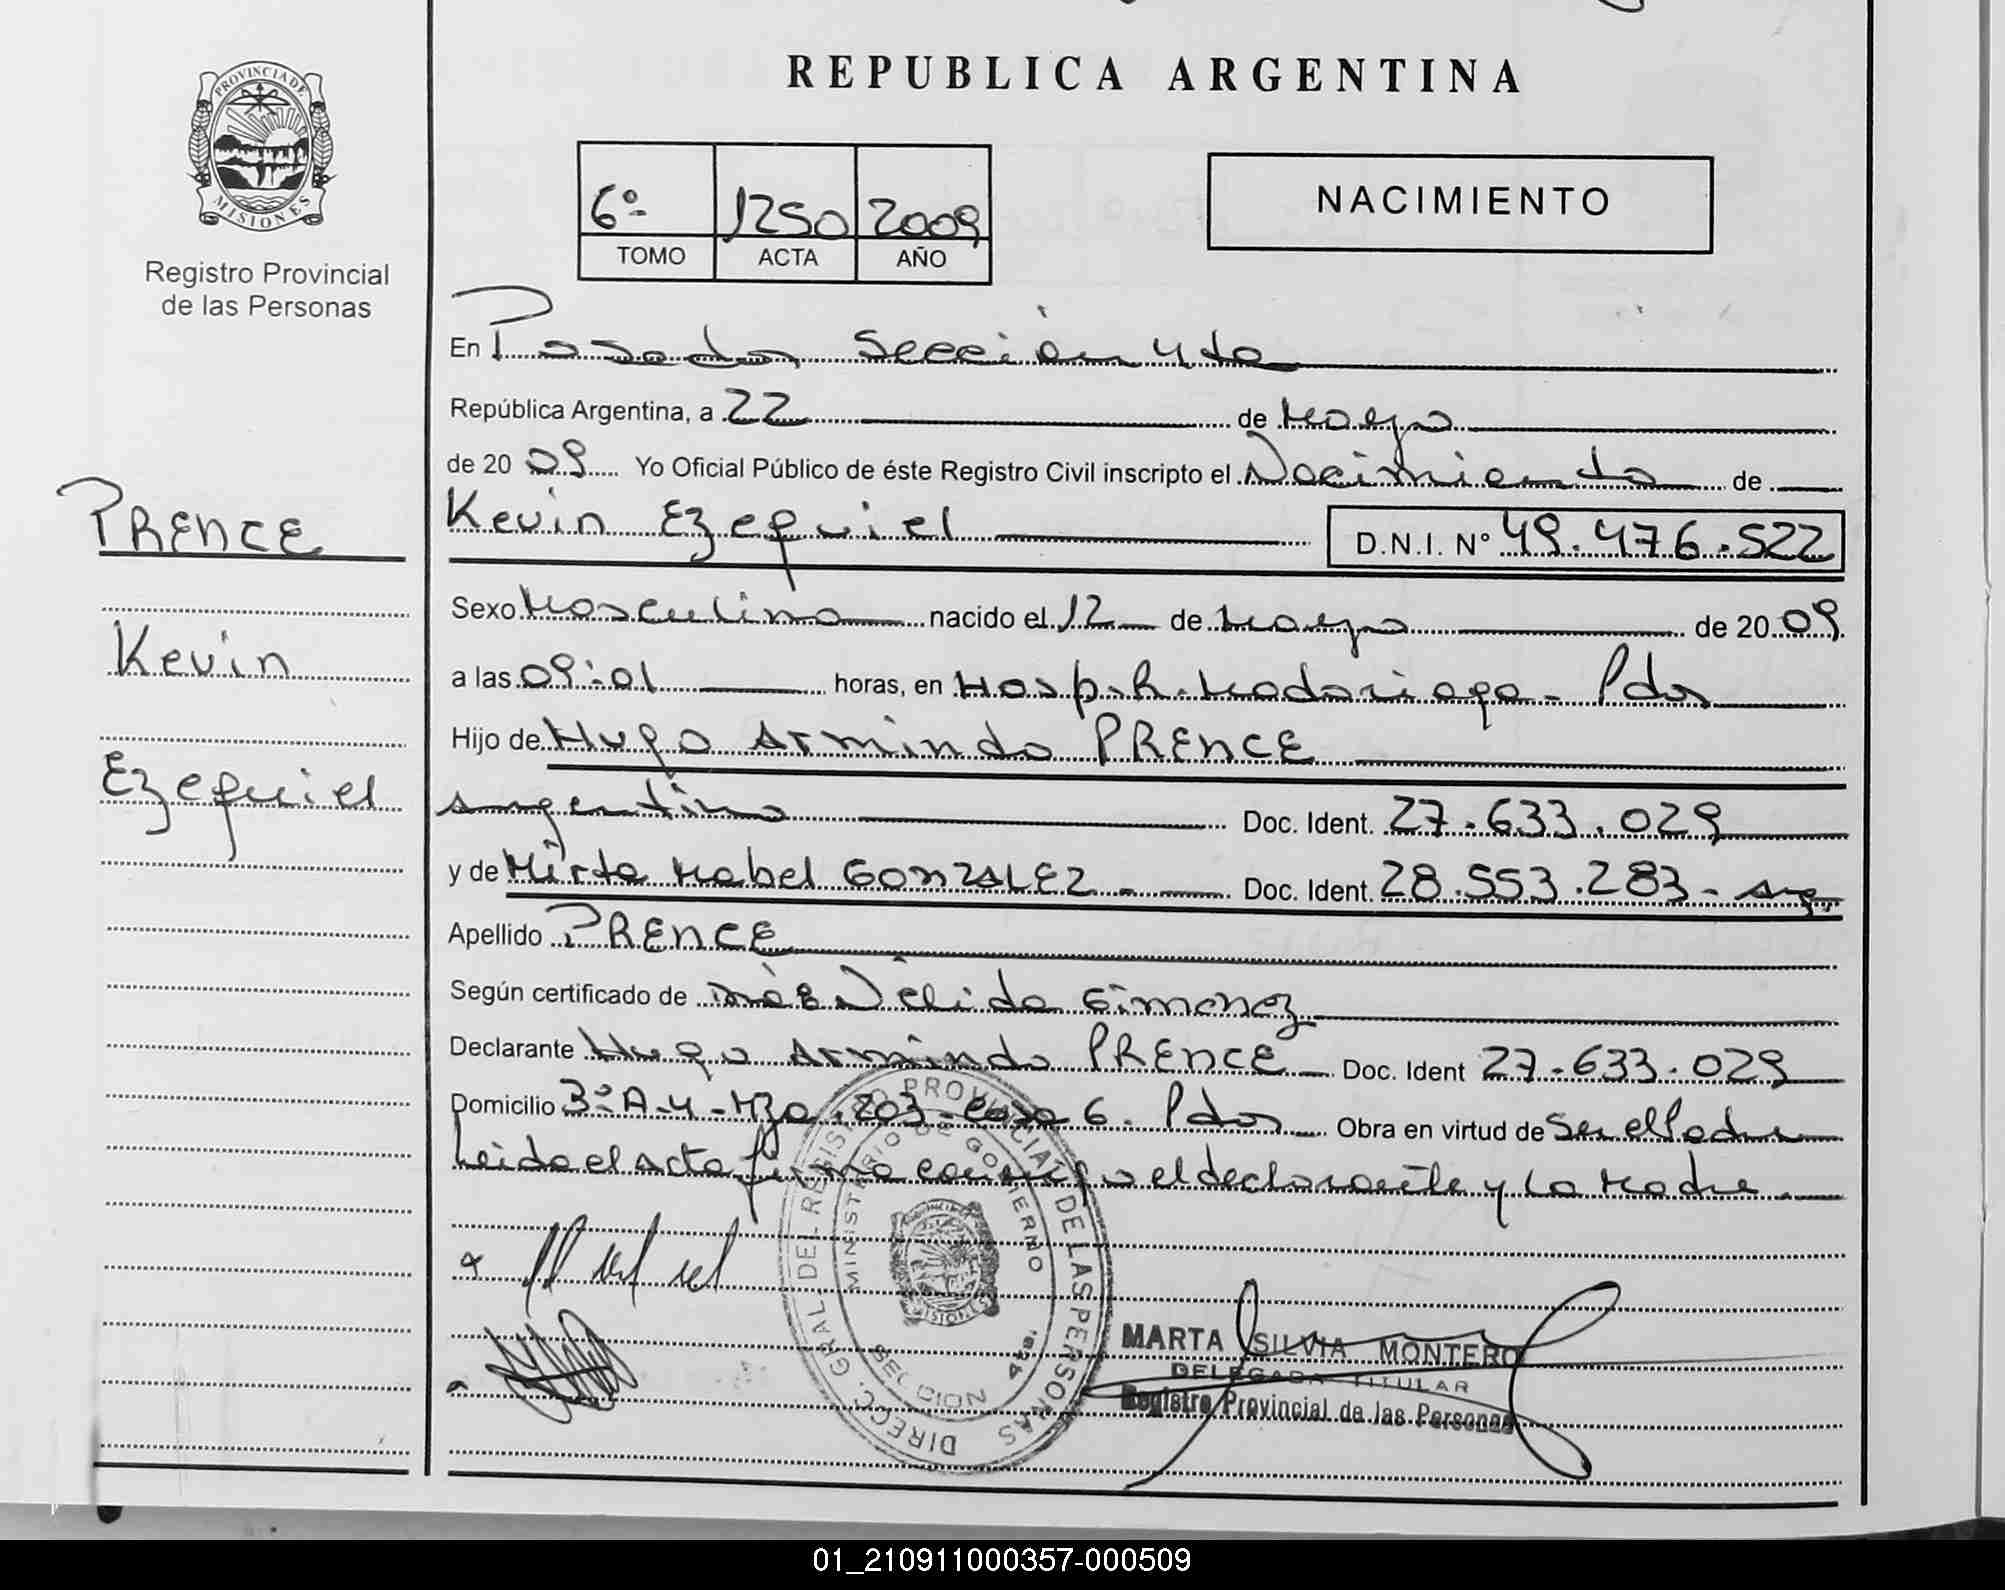 REPUBLICA ARGENTINA
PROVINCIA DE
MISIONES
Registro Provincial
de las Personas
6º 1250 2009
TOMO ACTA AÑO
NACIMIENTO
En Posadas Sección 4ta
República Argentina, a 22 de Mayo
de 2009 Yo Oficial Público de éste Registro Civil inscripto el Nacimiento de
Kevin Ezequiel D.N.I. Nº 49.476.522
PRENCE
Kevin
Ezequiel
Sexo Masculino nacido el 12 de Mayo de 2009
a las 09:01 horas, en Hosp. R. Madariaga - Pdas
Hijo de Hugo Armindo PRENCE
argentino Doc. Ident. 27.633.029
y de Mirta Mabel GONZALEZ - Doc. Ident. 28.553.283 - arg.
Apellido PRENCE
Según certificado de Inés Nélida Gimenez
Declarante Hugo Armindo PRENCE Doc. Ident 27.633.029
Domicilio 3º A-4-Mza. 203 - casa 6. Pdas Obra en virtud de Ser el Padre
Leido el acta firma conmigo el declarante y la Madre
DIRECC. GRAL. DEL REGISTRO PROVINCIAL DE LAS PERSONAS
MINISTERIO DE GOBIERNO
SECCION 4ta.
MARTA SILVIA MONTERO
DELEGADA TITULAR
Registro Provincial de las Personas
01_210911000357-000509